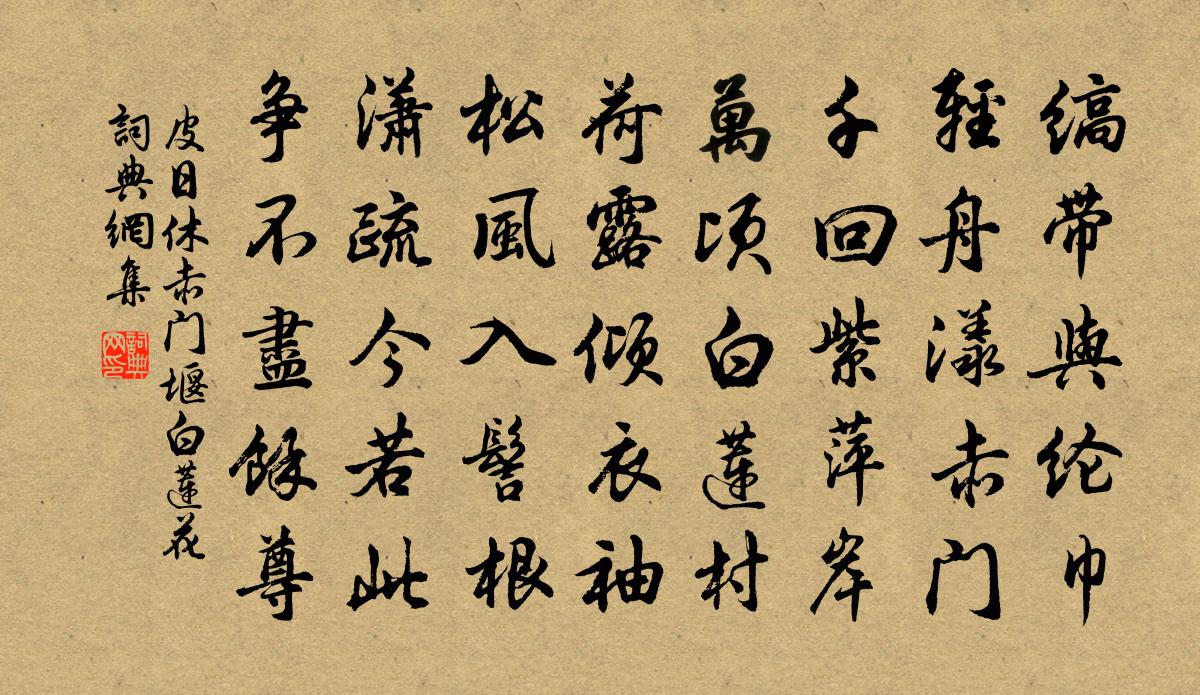 缟带與纶巾
輕舟漾赤门
千回紫萍岸
萬顷白蓮村
荷露倾衣袖
松風入髻根
瀟疏今若此
争不盡餘尊
皮日休赤门堰白蓮花
詞典網集
詞典網印